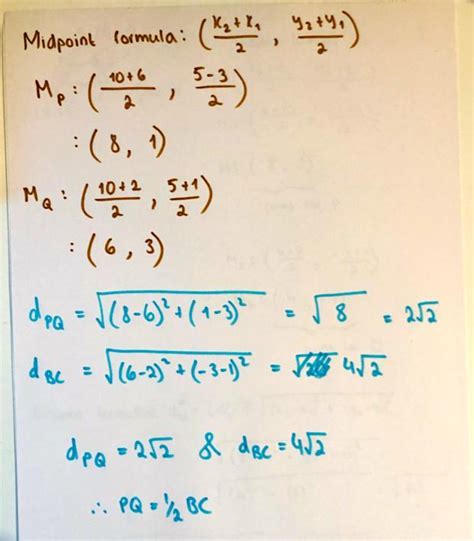 Midpoint formula: ( (x₂+x₁)/2 , (y₂+y₁)/2 )
M_P : ( (10+6)/2 , (5-3)/2 )
: (8, 1)
M_Q : ( (10+2)/2 , (5+1)/2 )
: (6, 3)
d_PQ = √((8-6)²+(1-3)²) = √8 = 2√2
d_BC = √((6-2)²+(-3-1)²) = 4√2
d_PQ = 2√2 & d_BC = 4√2
∴ PQ = 1/2 BC